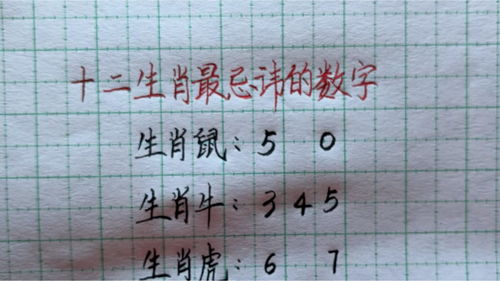 十二生肖最忌讳的数字
生肖鼠：5 0
生肖牛：3 4 5
生肖虎：6 7